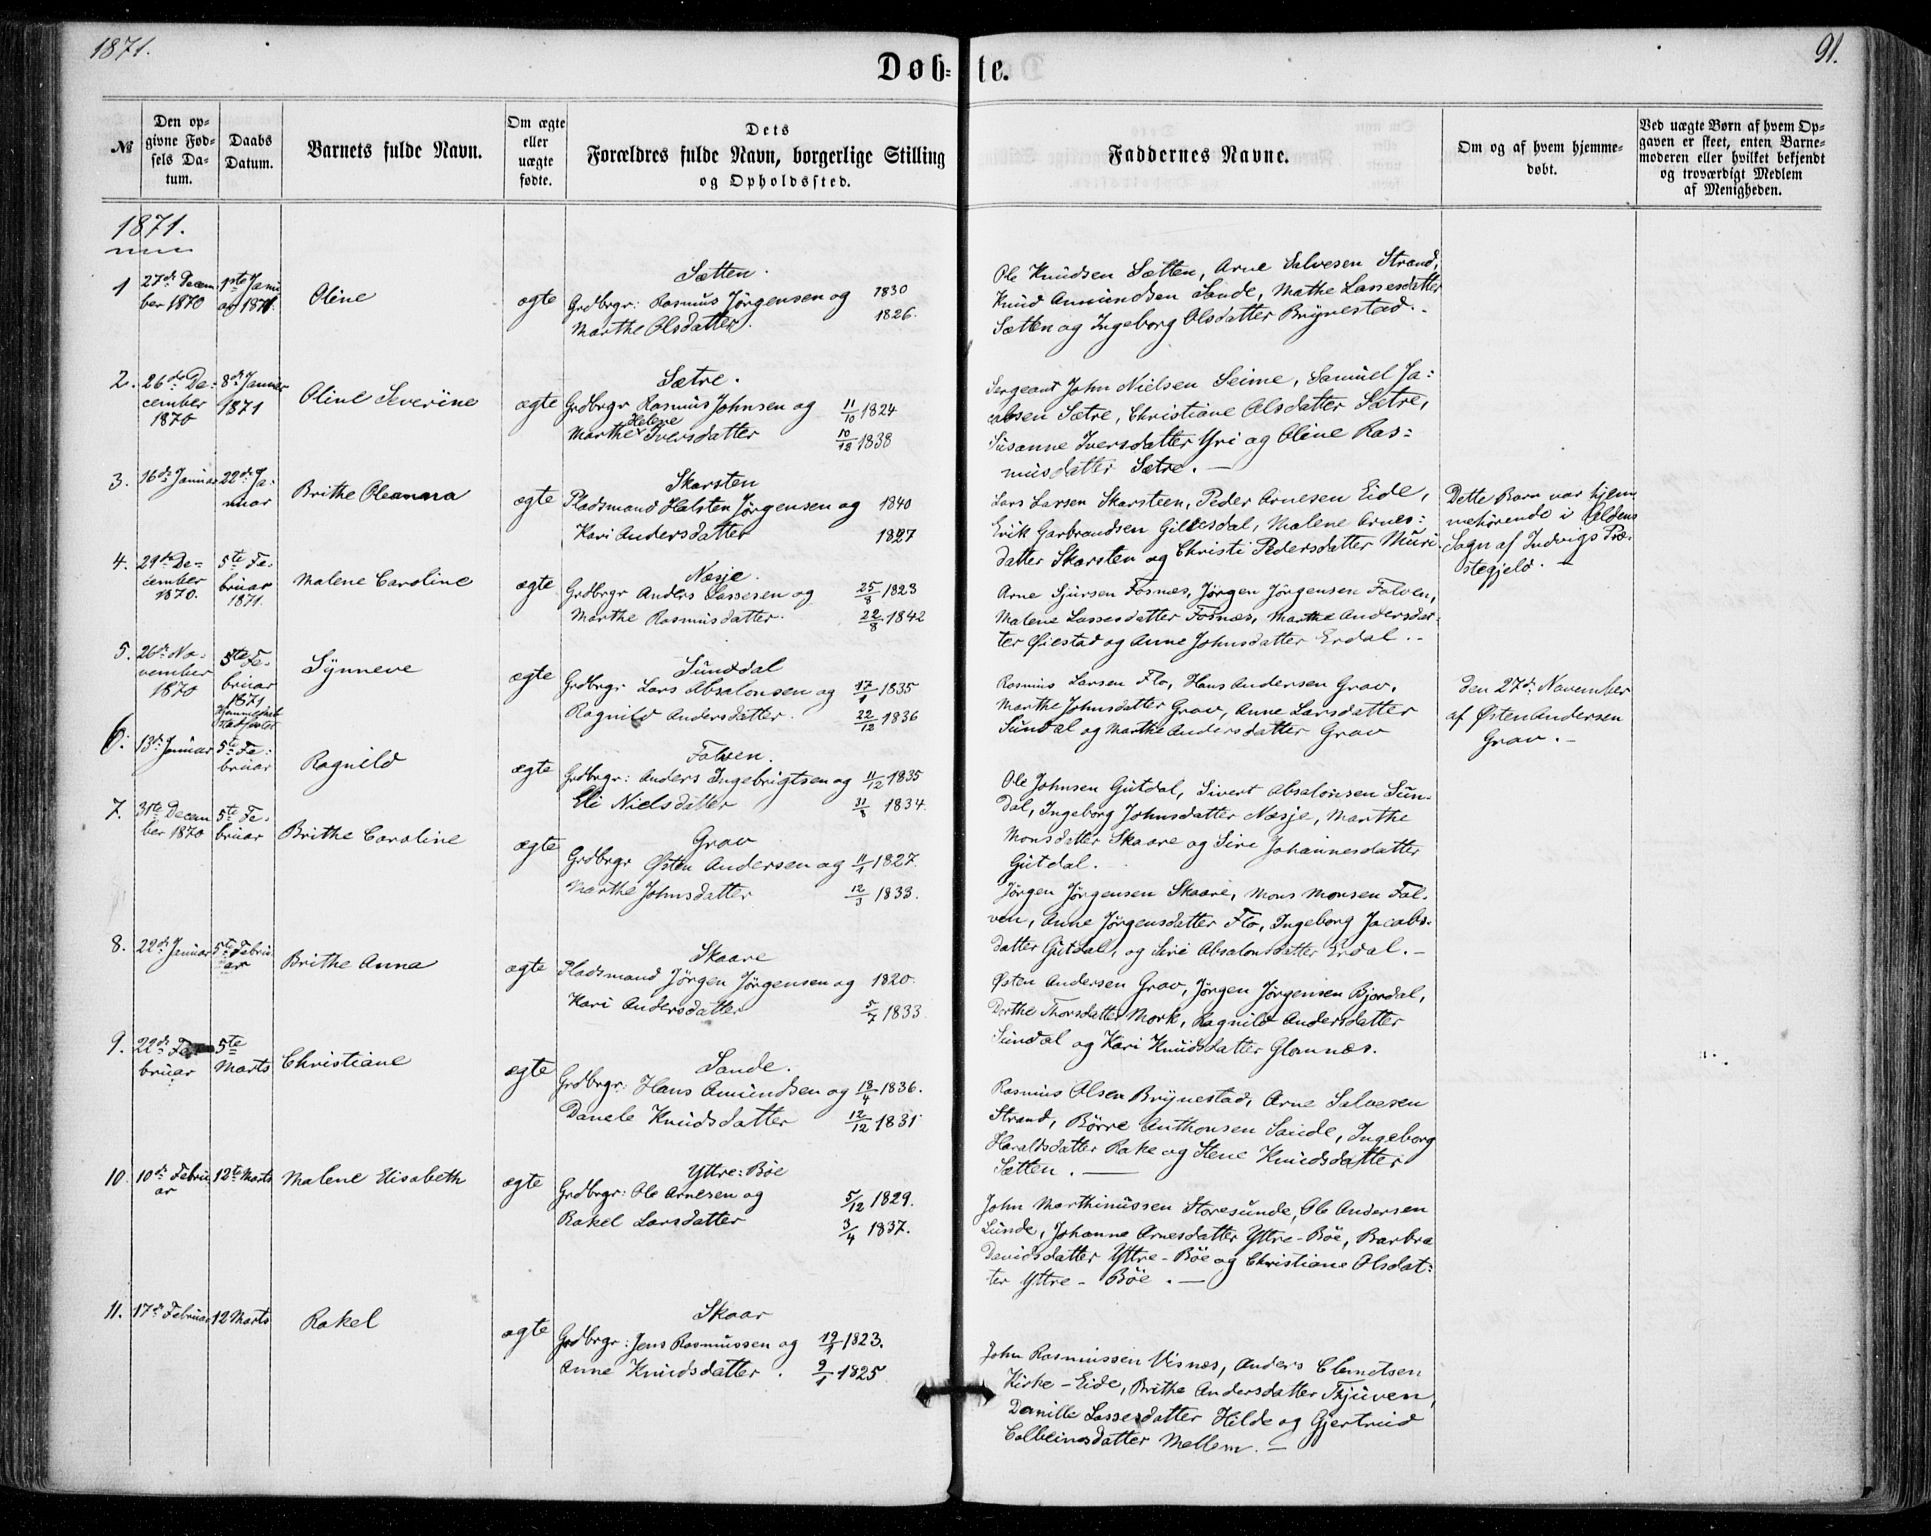 1871.
91.
Døb-te.
№
Den opgivne Fødsels Datum.
Daabs Datum.
Barnets fulde Navn.
Om ægte eller uægte fødte.
Dets Forældres fulde Navn, borgerlige Stilling og Opholdssted.
Faddernes Navne.
Om og af hvem hjemmedøbt.
Ved uægte Børn af hvem Opgaven er skeet, enten Barnemoderen eller hvilket bekjendt og troværdigt Medlem af Menigheden.
1871.
1
27de Decem
ber 1870
1ste Janu
ar 1871.
Oline
ægte
Sætten.
Grdbrgr: Rasmus Jørgensen og 1830
Marthe Olsdatter. 1826.
Ole Knudsen Sætten, Arne Salvesen Strand,
Knud Amundsen Sande, Mathe Lassesdatter
Sætten og Ingeborg Olsdatter Brynestad.
2.
26de De-
cember
1870
8de Januar
1871
Oline Severine
ægte
Sætre.
Grdbrgr Rasmus Johnsen og 11/10 1824
Helene
Marthe Iversdatter 10/12 1838
Sergeant John Nielsen Seime, Samuel Ja-
cobsen Sætre, Christiane Olsdatter Sætre,
Susanne Iversdatter Yri og Oline Ras-
musdatter Sætre. —
3.
16de Januar
22de Ja-
nuar
Brithe Oleanna
ægte
Skarsten
Pladsmand Halsten Jørgensen og 1840
Kari Andersdatter 1827
Lars Larsen Skarsteen, Peder Arnesen Eide,
Erik Garbrandsen Gillesdal, Malene Arnes-
datter Skarsten og Christi Pedersdatter Muri
Dette Barn var hjem
mehørende i Oldens
Sogn af Indvigs Præ-
stegjeld. —
4.
29de De-
cember
1870.
5te Fe-
bruar
1871.
Malene Caroline
ægte
Næsje.
Grdbrgr Anders Lassesen og 25/8 1823
Marthe Rasmusdatter. 22/8 1842
Arne Sjursen Fosnæs, Jørgen Jørgensen Falven,
Malene Lassesdatter Fosnæs, Marthe Andersdat-
ter Øiestad og Anne Johnsdatter Erdal.
5.
26de No-
vember
1870
5te Fe-
bruar
1871
Synneve
ægte
Sunddal
Grdbrgr: Lars Absalonsen og 17/1 1835
Ragnild Andersdatter. 22/12 1836
Rasmus Larsen Flo, Hans Andersen Grov,
Marthe Johnsdatter Grov, Anne Larsdatter
Sundal og Marthe Andersdatter Grov
Den 27de November
af Østen Andersen
Grov. —
6.
13de Januar
5te Fe-
bruar
Ragnild
ægte
Falven.
Grdbrgr: Anders Ingebrigtsen og 11/12 1835
Eli Nielsdatter 31/8 1834.
Ole Johnsen Gutdal, Sivert Absalonsen Sun-
dal, Ingeborg Johnsdatter Næsje, Marthe
Monsdatter Skaare og Siri Johannesdatter
Gutdal.
7.
31te Decem
ber 1870
5te Fe-
bruar
Brithe Caroline
ægte
Grov
Grdbrgr Østen Andersen og 11/1 1827.
Marthe Johnsdatter 12/3 1833.
Jørgen Jørgensen Skaare, Mons Monsen Fal-
ven, Anne Jørgensdatter Flo, Ingeborg Jacobs-
datter Gutdal, og Siri Absalonsdatter Erdal. —
8.
22de Januar
5te Febru-
ar
Brithe Anna
ægte
Skaare
Pladsmand Jørgen Jørgensen og 1820
Kari Andersdatter 5/7 1833
Østen Andersen Grov, Jørgen Jørgensen Bjordal,
Dorthe Thorsdatter Mork, Ragnild Andersdatter
Sundal og Kari Knudsdatter Glomnæs.
9.
22de Fe-
bruar
5te
Marts
Christiane
ægte
Sande.
Grdbrgr: Hans Amundsen og 18/4 1836.
Danele Knudsdatter 12/12 1831
Rasmus Olsen Brynestad, Arne Salvesen
Strand, Børre Anthonsen Sande, Ingeborg
Haraldsdatter Rake og Stene Knudsdatter
Sætten. —
10.
10de Febru
ar
12te Marts
Malene Elisabeth
ægte
Yttre-Bøe
Grdbrgr: Ole Arnesen og 5/12 1829.
Rakel Larsdatter 3/4 1837.
John Marthinussen Storesunde, Ole Andersen
Lunde, Johanne Arnesdatter Yttre-Bøe, Barbra
Davidsdatter Yttre-Bøe og Christiane Olsdat-
ter Yttre-Bøe. —
11.
17de Februar
12 Marts
Rakel
ægte
Skaar
Grdbrgr: Jens Rasmussen og 19/1 1823.
Anne Knudsdatter. 9/1 1825
John Rasmussen Visnæs, Anders Clemetsen
Kirke-Eide, Brithe Andersdatter Tjuven,
Danille Lassesdatter Hilde og Gjertrud
Colbeinsdatter Mellem. —